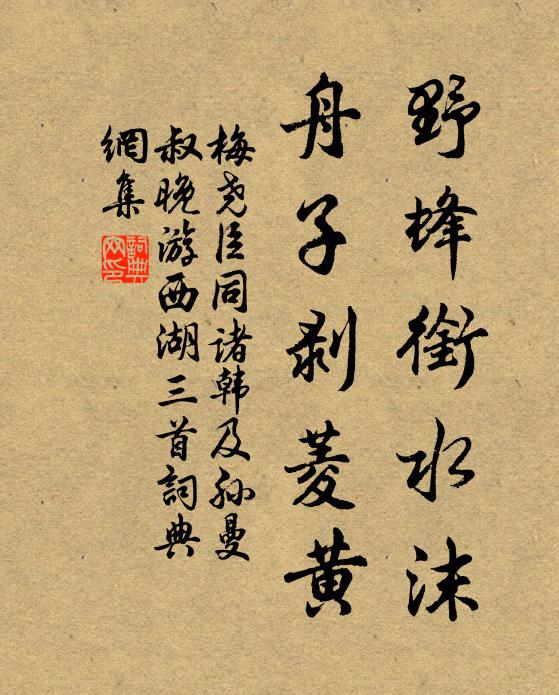 野蜂銜水沫
舟子剥菱黄
梅尧臣同诸韩及孙曼
叔晚游西湖三首詞典
網集
詞典
网印